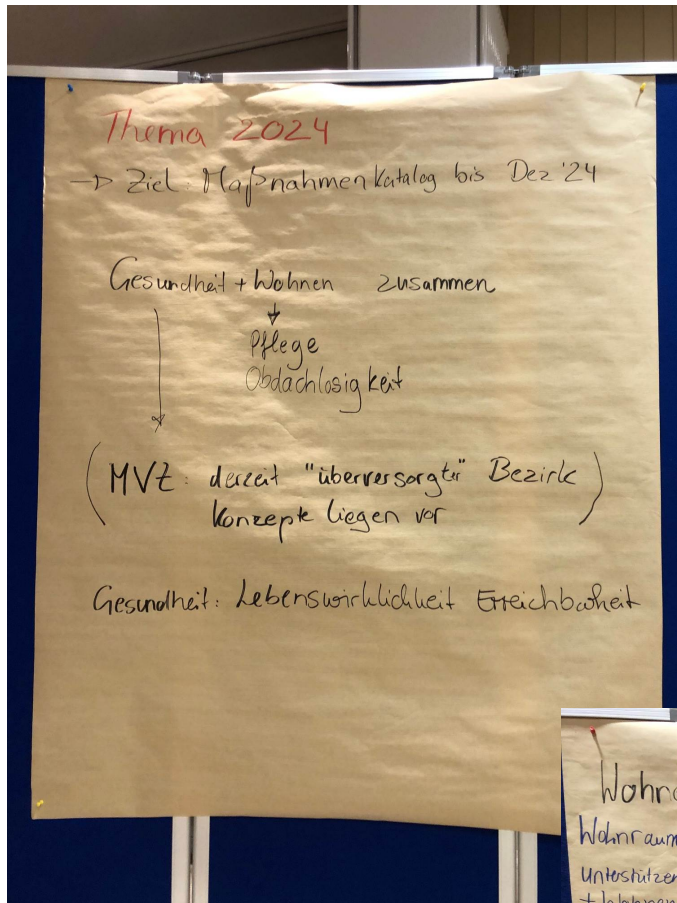 Thema 2024
→ Ziel: Maßnahmenkatalog bis Dez '24
Gesundheit + Wohnen zusammen
Pflege
Obdachlosigkeit
(MVZ: derzeit "überversorgter" Bezirk
Konzepte liegen vor)
Gesundheit: Lebenswirklichkeit Erreichbarkeit
Wohnraum
unterstützen